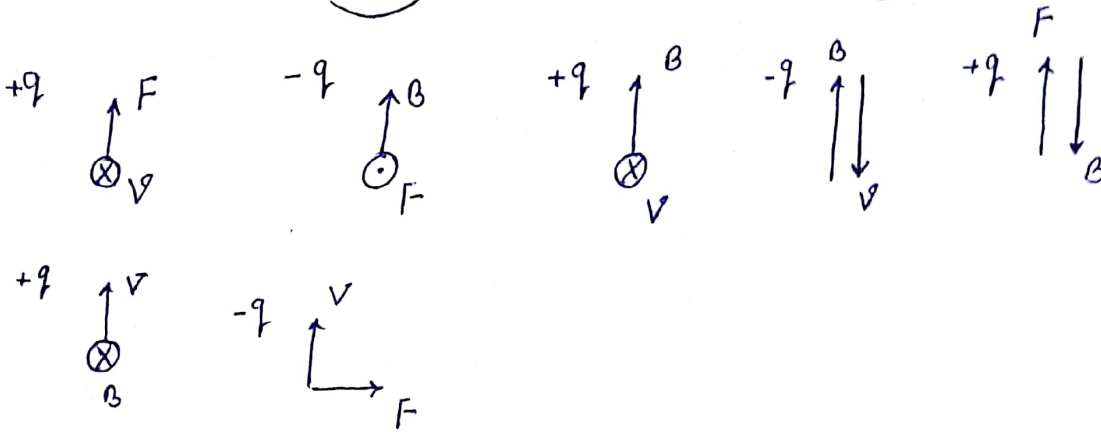 +q F V
-q B F
+q B V
-q B V
+q F B
+q V B
-q V F